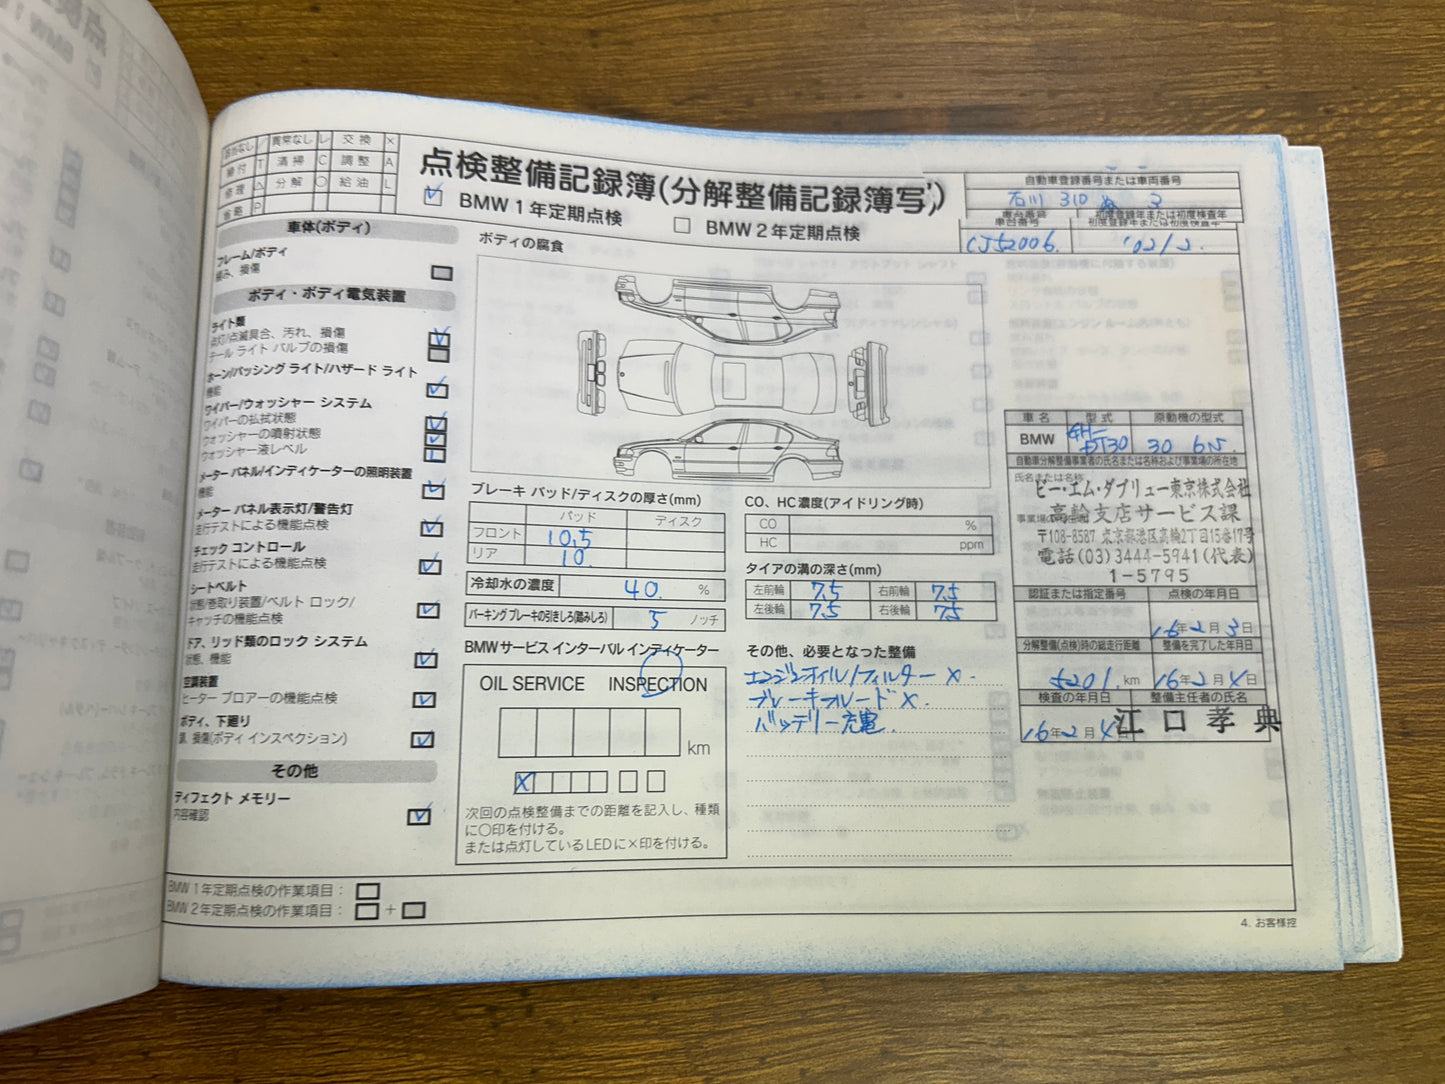 該当なし ／ 異常なし レ 交換 ×
締付 T 清掃 C 調整 A
修理 △ 分解 ○ 給油 L
省略 P
点検整備記録簿(分解整備記録簿写)
BMW 1年定期点検 BMW 2年定期点検
自動車登録番号または車両番号
石川 310 3
車台番号 初度登録年または初度検査年
CJ52006. '02/2.
車体(ボディ)
フレーム/ボディ
緩み、損傷
ボディ・ボディ電気装置
ライト類
点灯/点滅具合、汚れ、損傷
テール ライト バルブの損傷
ホーン/パッシング ライト/ハザード ライト
機能
ワイパー/ウォッシャー システム
ワイパーの払拭状態
ウォッシャーの噴射状態
ウォッシャー液レベル
メーター パネル/インディケーターの照明装置
機能
メーター パネル表示灯/警告灯
走行テストによる機能点検
チェック コントロール
走行テストによる機能点検
シートベルト
状態/巻取り装置/ベルト ロック/
キャッチの機能点検
ドア、リッド類のロック システム
状態、機能
空調装置
ヒーター ブロアーの機能点検
ボディ、下廻り
錆、損傷(ボディ インスペクション)
その他
ディフェクト メモリー
内容確認
ボディの腐食
ブレーキ パッド/ディスクの厚さ(mm)
パッド ディスク
フロント 10.5
リア 10.
冷却水の濃度 40. %
パーキング ブレーキの引きしろ(踏みしろ) 5 ノッチ
BMWサービス インターバル インディケーター
OIL SERVICE INSPECTION
km
X
次回の点検整備までの距離を記入し、種類
に○印を付ける。
または点灯しているLEDに×印を付ける。
CO、HC濃度(アイドリング時)
CO %
HC ppm
タイアの溝の深さ(mm)
左前輪 7.5 右前輪 7.5
左後輪 7.5 右後輪 7.5
その他、必要となった整備
エンジンオイル/フィルター ×.
ブレーキフルード ×.
バッテリー充電.
車名 型式 原動機の型式
BMW GH- DT30 30 6S.
自動車分解整備事業者の氏名または名称および事業場の所在地
氏名または名称
ビー・エム・ダブリュー東京株式会社
高輪支店サービス課
〒108-8587 東京都港区高輪2丁目15番17号
電話(03)3444-5941(代表)
1-5795
認証または指定番号 点検の年月日
16年2月3日
分解整備(点検)時の総走行距離 整備を完了した年月日
5201. km 16年2月4日
検査の年月日 整備主任者の氏名
16年2月4日 江口孝典
BMW 1年定期点検の作業項目：
BMW 2年定期点検の作業項目： +
4. お客様控